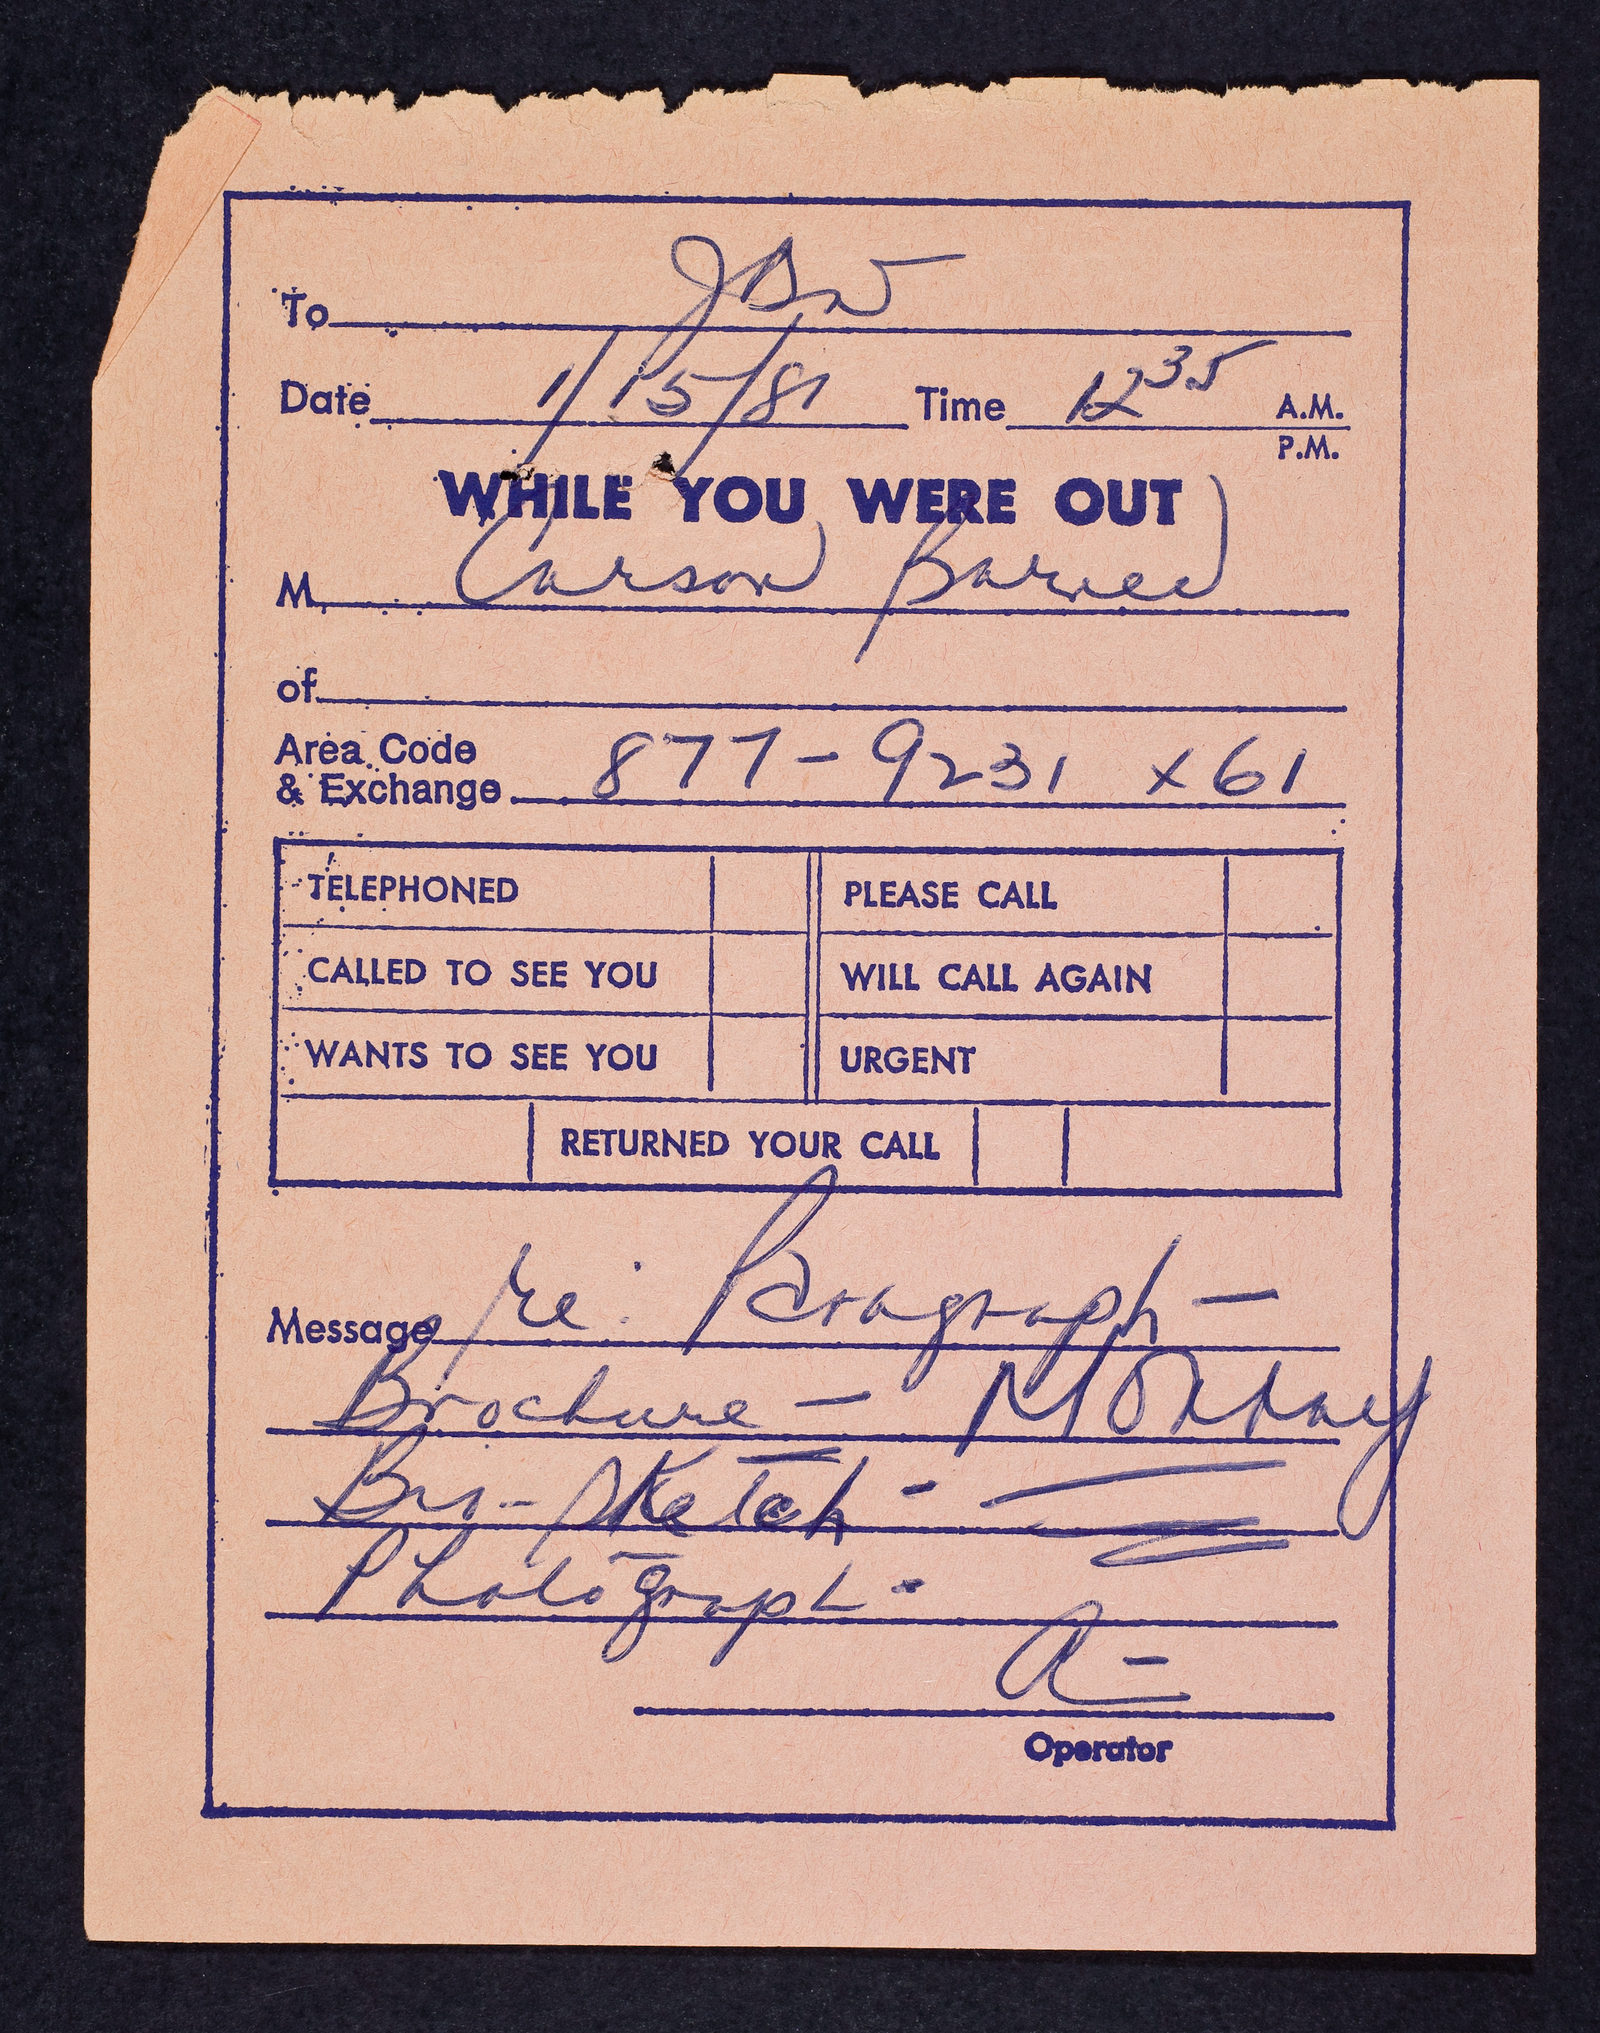 To JBW
Date 1/15/81 Time 12 35 A.M.
P.M.
WHILE YOU WERE OUT
M Carson
of
Area Code
& Exchange 877-9231 x61
TELEPHONED PLEASE CALL
CALLED TO SEE YOU WILL CALL AGAIN
WANTS TO SEE YOU URGENT
RETURNED YOUR CALL
Message re: Paragraph -
Brochure - Monday
Bio-Sketch -
Photograph -
Operator